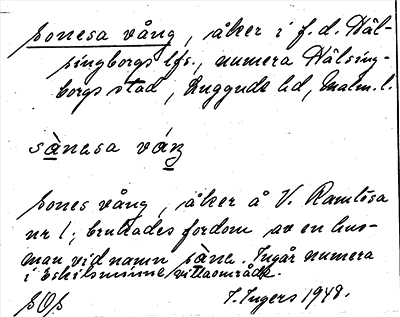 ponesa vång, åker i f.d. Häl-
singborgs lfs., numera Hälsing-
borgs stad, Luggude hd, Malm. l.
sànasa váŋ
pones vång, åker å V. Ramlösa
nr 1; brukades fordom av en hus-
man vid namn pàna. Ingår numera
i Eskilsminne villaområde.
I. Ingers 1948.